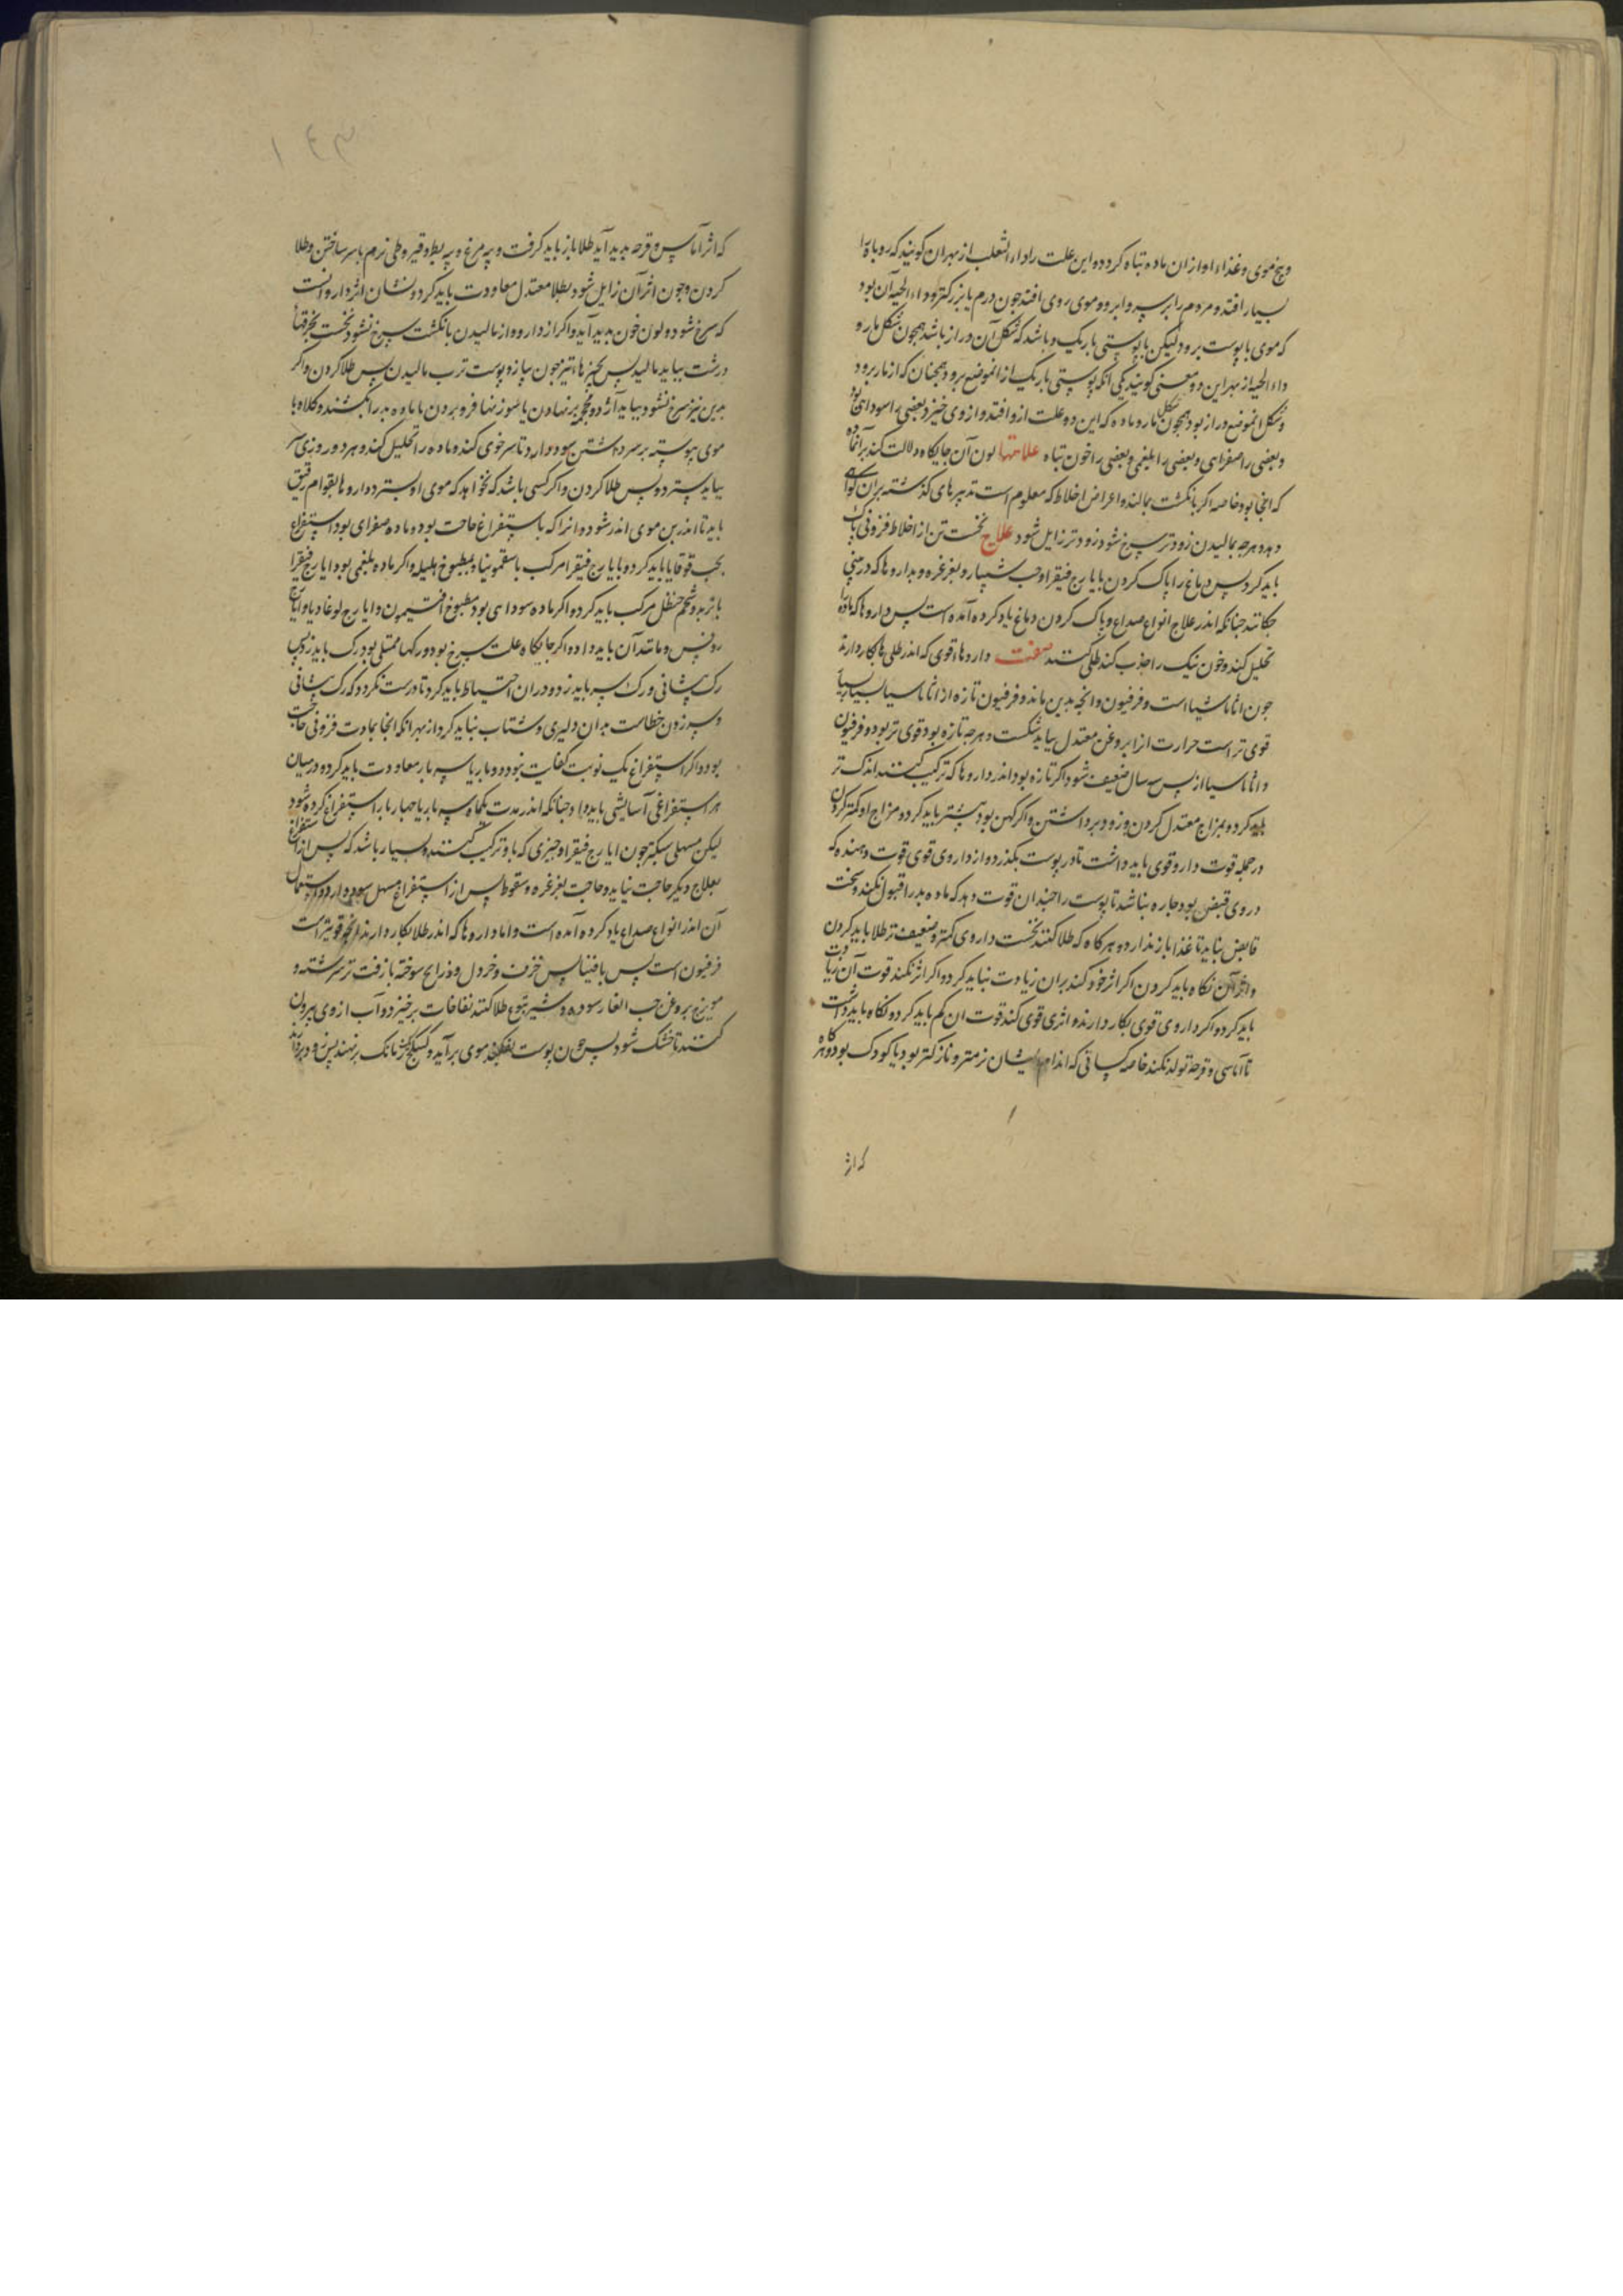 و بیخ موی و غذاء او از ان ماده تباه کردد و این علت را داء الثعلب از بهر ان کویند که روباه را
بسیار افتد و مردم را بر سر و ابرو و موی روی افتد جون درم یا بزرکتر و داء الحیه آن بود
که موی با پوست برود لیکن با پوستی باریک و باشد که شکل آن دراز باشد همجون شکل مار و
داء الحیه از بهر این دو معنی کویند یکی انکه پوستی باریک از انموضع برود همجنان که از مار برود
و شکل انموضع دراز بود همجون شکل مار و ماده که این دو علت ازو افتد و از وی خیزد بعضی را سودایی بود
و بعضی را صفرایی و بعضی را بلغمی و بعضی را خون تباه علامتها لون آن جایکاه دلالت کند بر آن ماده
که انجا بود خاصه اکر بانکشت بمالند و اعراض اخلاط که معلوم است و تدبیرهای کذشته بر ان کواهی
دهد و هرجه بمالیدن زودتر سرخ شود زودتر زایل شود علاج نخست تن از اخلاط فزونی پاک
باید کرد پس دماغ را پاک کردن بایارج فیقرا و حب شبیار و بغرغره و بداروها که در بینی
جکانند جنانکه اندر علاج انواع صداع و پاک کردن دماغ یاد کرده آمده است پس داروها که ماده را
تحلیل کند و خون نیک را جذب کند طلی کنند صفت داروهاء قوی که اندر طلی ها بکار دارند
جون ثافسیا است و فرفیون و انجه بدین ماند و فرفیون تازه از ثافسیا بسیار
قوی تر است حرارت او را بروغن معتدل بباید شکست و هرجه تازه بود قوی تر بود و فرفیون
و ثافسیا از پس سه سال ضعیف شود اکر تازه بود اندر داروها که ترکیب کنند اندک تر
باید کرد و بمزاج معتدل کردن و زود برداشتن و اکر کهن بود بیشتر باید کرد و مزاج او کمتر کردن
در جمله قوت دارو قوی باید داشت تا در پوست بکذرد و از داروی قوی قوت دهنده که
در وی قبضی بود جاره نباشد تا پوست را جندان قوت دهد که ماده بد را قبول نکند و سخت
قابض نباید تا غذا باز ندارد و هرکاه که طلا کنند نخست داروی کمتر و ضعیف تر طلا باید کردن
و اثر آن نکاه باید کردن اکر اثر خود کند بران زیادت نباید کرد و اکر اثر نکند قوت آن زیادت
باید کرد و اکر داروی قوی بکار دارند و اثری قوی کند قوت ان کم باید کرد و نکاه باید داشت
تا آماسی و قرحه تولد نکند خاصه کسانی که اندامهاء ایشان نرمتر و نازکتر بود یا کودک بود و هرکاه
که اثر
۱۴۳
که اثر آماس و قرحه پدید آید طلا باز باید کرفت و پیه مرغ و پیه بط و قیروطی نرم بر سر ساختن و طلا
کردن و جون اثر آن زایل شود بطلا معتدل معاودت باید کرد و نشان اثر دارو انست
که سرخ شود و لون خون پدید آید و اکر از دارو و از مالیدن بانکشت سرخ نشود نخست بخرقهاء
درشت بباید مالید پس بجیزهاء تیز جون پیاز و پوست ترب مالیدن پس طلا کردن و اکر
بدین نیز سرخ نشود بباید آژد و محجمه برنهادن یا سوزنها فرو بردن تا ماده بد را بکشند و کلاه با
موی پیوسته بر سر داشتن سود دارد تا سر خوی کند و ماده را تحلیل کند و هر دو روزی سر
بباید سترد و پس طلا کردن و اکر کسی باشد که نخواهد که موی او بسترد داروها بقوام رقیق
باید تا اندر بن موی اندر شود و انرا که باستفراغ حاجت بود و ماده صفرای بود استفراغ
بحب قوقایا باید کرد و بایارج فیقرا مرکب با سقمونیا و بمطبوخ هلیله و اکر ماده بلغمی بود ایارج فیقرا
با تربد و شحم حنظل مرکب باید کرد و اکر ماده سودای بود مطبوخ افتیمون و ایارج لوغادیا و ایارج
روفس و مانند آن باید داد و اکر جایکاه علت سرخ بود و رکها ممتلی بود رک باید زد پس
رک پیشانی و رک سر باید زد و در ان احتیاط باید کرد تا درست نکردد که رک پیشانی
و سر زدن خطاست بدان دلیری و شتاب نباید کرد از بهر انکه انجا بمادت فزونی حاجت
بود و اکر استفراغ یک نوبت کفایت نبود دو بار یا سه بار معاودت باید کرد و در میان
هر استفراغی آسایشی باید داد جنانکه اندر مدت یکماه سه بار یا جهار بار استفراغ کرده شود
لیکن مسهلی سبکتر جون ایارج فیقرا و جیزی که با او ترکیب کنند و بسیار باشد که پس از استفراغ
بعلاج دیکر حاجت نیاید و حاجت بغرغره و سعوط پس از استفراغ مسهل سود دارد و استعمال
آن اندر انواع صداع یاد کرده آمده است و اما داروها که اندر طلا بکار دارند انجه قویتر است
فرفیون است پس ثافسیا پس خزف و خردل و ذرایح سوخته با زفت تر سرشته و
مویزج بروغن حب الغار سوده و شیر یتوع طلا کنند نفاخات برخیزد و آب از وی بیرون
کنند تا خشک شود پس جون پوست بفکند موی برآید و کبیکج یک زمانک برنهند پس زود بردارند